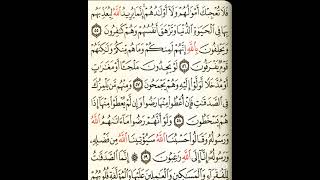 فَلَا تُعْجِبْكَ أَمْوَٰلُهُمْ وَلَآ أَوْلَٰدُهُمْ إِنَّمَا يُرِيدُ ٱللَّهُ لِيُعَذِّبَهُم
بِهَا فِى ٱلْحَيَوٰةِ ٱلدُّنْيَا وَتَزْهَقَ أَنفُسُهُمْ وَهُمْ كَٰفِرُونَ ٥٥
وَيَحْلِفُونَ بِٱللَّهِ إِنَّهُمْ لَمِنكُمْ وَمَا هُم مِّنكُمْ وَلَٰكِنَّهُمْ
قَوْمٌ يَفْرَقُونَ ٥٦ لَوْ يَجِدُونَ مَلْجَـًٔا أَوْ مَغَٰرَٰتٍ
أَوْ مُدَّخَلًا لَّوَلَّوْا۟ إِلَيْهِ وَهُمْ يَجْمَحُونَ ٥٧ وَمِنْهُم مَّن يَلْمِزُكَ
فِى ٱلصَّدَقَٰتِ فَإِنْ أُعْطُوا۟ مِنْهَا رَضُوا۟ وَإِن لَّمْ يُعْطَوْا۟ مِنْهَآ إِذَا
هُمْ يَسْخَطُونَ ٥٨ وَلَوْ أَنَّهُمْ رَضُوا۟ مَآ ءَاتَىٰهُمُ ٱللَّهُ
وَرَسُولُهُۥ وَقَالُوا۟ حَسْبُنَا ٱللَّهُ سَيُؤْتِينَا ٱللَّهُ مِن فَضْلِهِۦ
وَرَسُولُهُۥٓ إِنَّآ إِلَى ٱللَّهِ رَٰغِبُونَ ٥٩ إِنَّمَا ٱلصَّدَقَٰتُ
لِلْفُقَرَآءِ وَٱلْمَسَٰكِينِ وَٱلْعَٰمِلِينَ عَلَيْهَا وَٱلْمُؤَلَّفَةِ قُلُوبُهُمْ